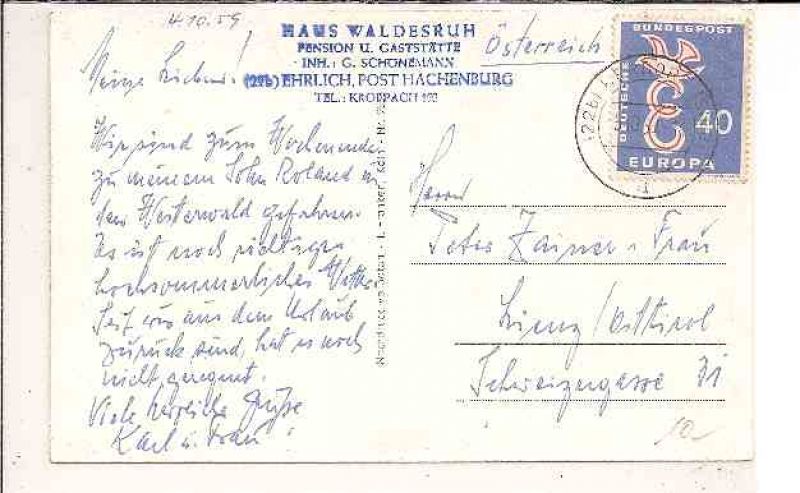 4.10.59
HAUS WALDESRUH
PENSION U. GASTSTÄTTE
INH.: G. SCHÖNEMANN
(22b) EHRLICH, POST HACHENBURG
TEL.: KROPPACH
Österreich
Meine Lieben!
Wir sind zum Wochenende
zu meinem Sohn Roland in
den Westerwald gefahren.
Es ist noch richtiges
hochsommerliches Wetter.
Seit wir aus dem Urlaub
zurück sind, hat es noch
nicht geregnet.
Viele herzliche Grüße
Karl u. Frau
DEUTSCHE BUNDESPOST
40
EUROPA
(22b)
Herrn
Peter Zainer u. Frau
Lienz / Osttirol
Schweizergasse 31
10.-